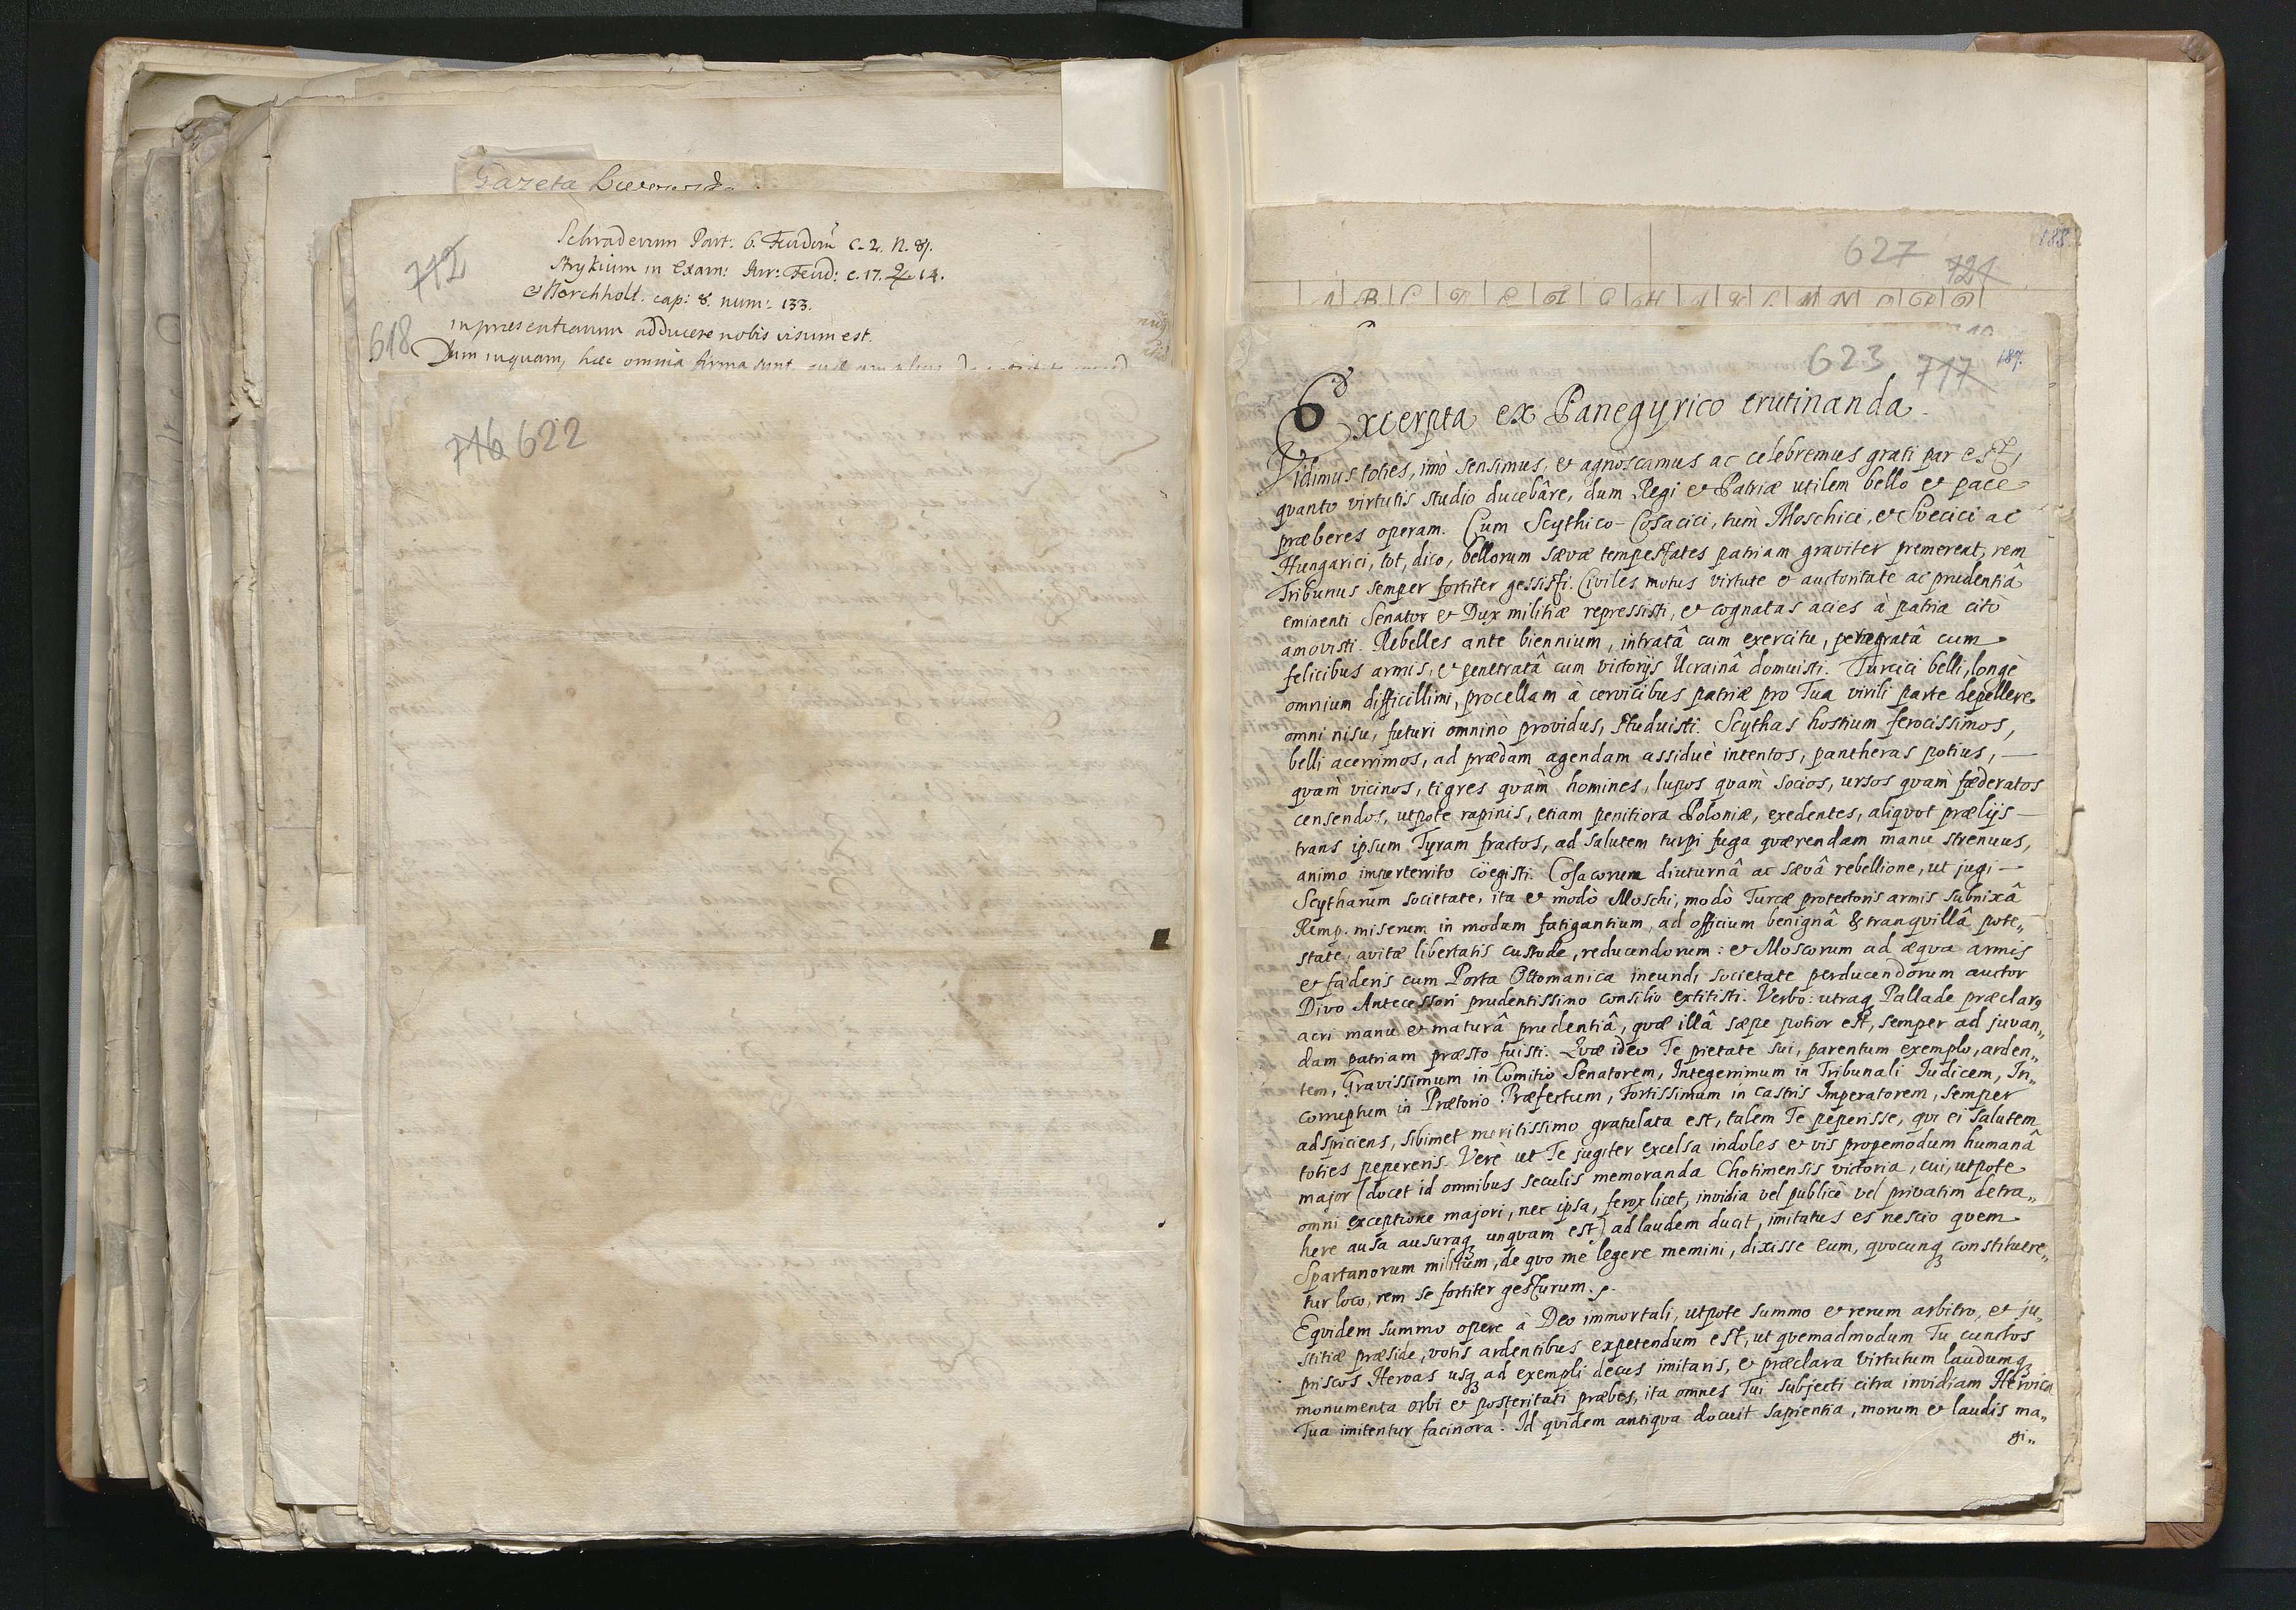 Gazeta
712
Schraderum Part: 6. Feudorũ c. 2. n. 89.
Strykium in Exam: Jur: Feud: c. 17. 14.
& Horchholt. cap: 8. num: 133.
in praesentiarum adducere nobis visum est.
618
Dum inquam, haec omnia firma sunt
716 622
188.
627 721
A B C D E F G H I K L M N O P Q
623 717 187.
Excerpta ex Panegyrico crutinanda.
Vidimus toties, imò sensimus, et agnoscamus ac celebremus grati par est,
quanto virtutis studio ducebâre, dum Regi et Patriæ utilem bello et pace
præberes operam. Cum Scythico-Cosacici, tum Moschici, et Svecici ac
Hungarici, tot, dico, bellorum sævæ tempestates patriam graviter premerent, rem
Tribunus semper fortiter gessisti. Civiles motus virtute et auctoritate ac prudentiâ
eminenti Senator et Dux militiæ repressisti, et cognatas acies à patria citò
amovisti. Rebelles ante biennium, intratâ cum exercitu, peragratâ cum
felicibus armis, et penetratâ cum victorijs Ucrainâ domuisti. Turcici belli, longè
omnium difficillimi, procellam à cervicibus patriæ pro Tua virili parte depellere
omni nisu, futuri omnino providus, studuisti. Scythas hostium ferocissimos,
belli acerrimos, ad prædam agendam assiduè intentos, pantheras potius, —
quàm vicinos, tigres quàm homines, lupos quàm socios, ursos quàm fæderatos
censendos, utpote rapinis, etiam penitiora Poloniæ, exedentes, aliquot prælijs —
trans ipsum Tyram fractos, ad salutem turpi fuga quærendam manu strenuus,
animo imperterrito cöegisti. Cosacorum diuturnâ ac sævâ rebellione, ut jugi —
Scytharum societate, ita et modò Moschi, modò Turcæ protectoris armis subnixâ
Remp. miserum in modum fatigantium, ad officium benignâ & tranquillâ pote„
state, avitæ libertatis custode, reducendorum: et Moscorum ad æqua armis
et fæderis cum Porta Ottomanica ineundi societate perducendorum auctor
Divo Antecessori prudentissimo consilio extitisti. Verbo: utraq Pallade præclarq
acri manu et maturâ prudentiâ, quæ illâ sæpe potior est, semper ad juvan„
dam patriam præsto fuisti. Quæ ideo Te pietate sui, parentum exemplo, arden„
tem, Gravissimum in Comitio Senatorem, Integerrimum in Tribunali Iudicem, In„
corruptum in Prætorio Præfectum, Fortissimum in castris Imperatorem, semper
adspiciens, sibimet meritissimo gratulata est, talem Te peperisse, qui ei salutem
toties pepereris. Verè ut Te jugiter excelsa indoles et vis propemodum humanâ
major (docet id omnibus seculis memoranda Chotimensis victoria, cui, utpote
omni exceptione majori, nec ipsa, ferox licet, invidia vel publicè vel privatim detra„
here ausa ausuraq unquam est) ad laudem ducit, imitatus es nescio quem
Spartanorum militum, de quo me legere memini, dixisse eum, quocunq constituere„
tur loco, rem se fortiter gesturum.
Equidem summo opere à Deo immortali, utpote summo et rerum arbitro, et ju„
stitiæ præside, votis ardentibus expetendum est, ut quemadmodum Tu cunctos
priscos Heroas usq ad exempli decus imitaris, et præclara virtutum laudumq
monumenta orbi et posteritati præbes, ita omnes Tui subjecti citra invidiam Heroica
Tua imitentur facinora! Id quidem antiqua docuit sapientia, morum et laudis ma„
gi„